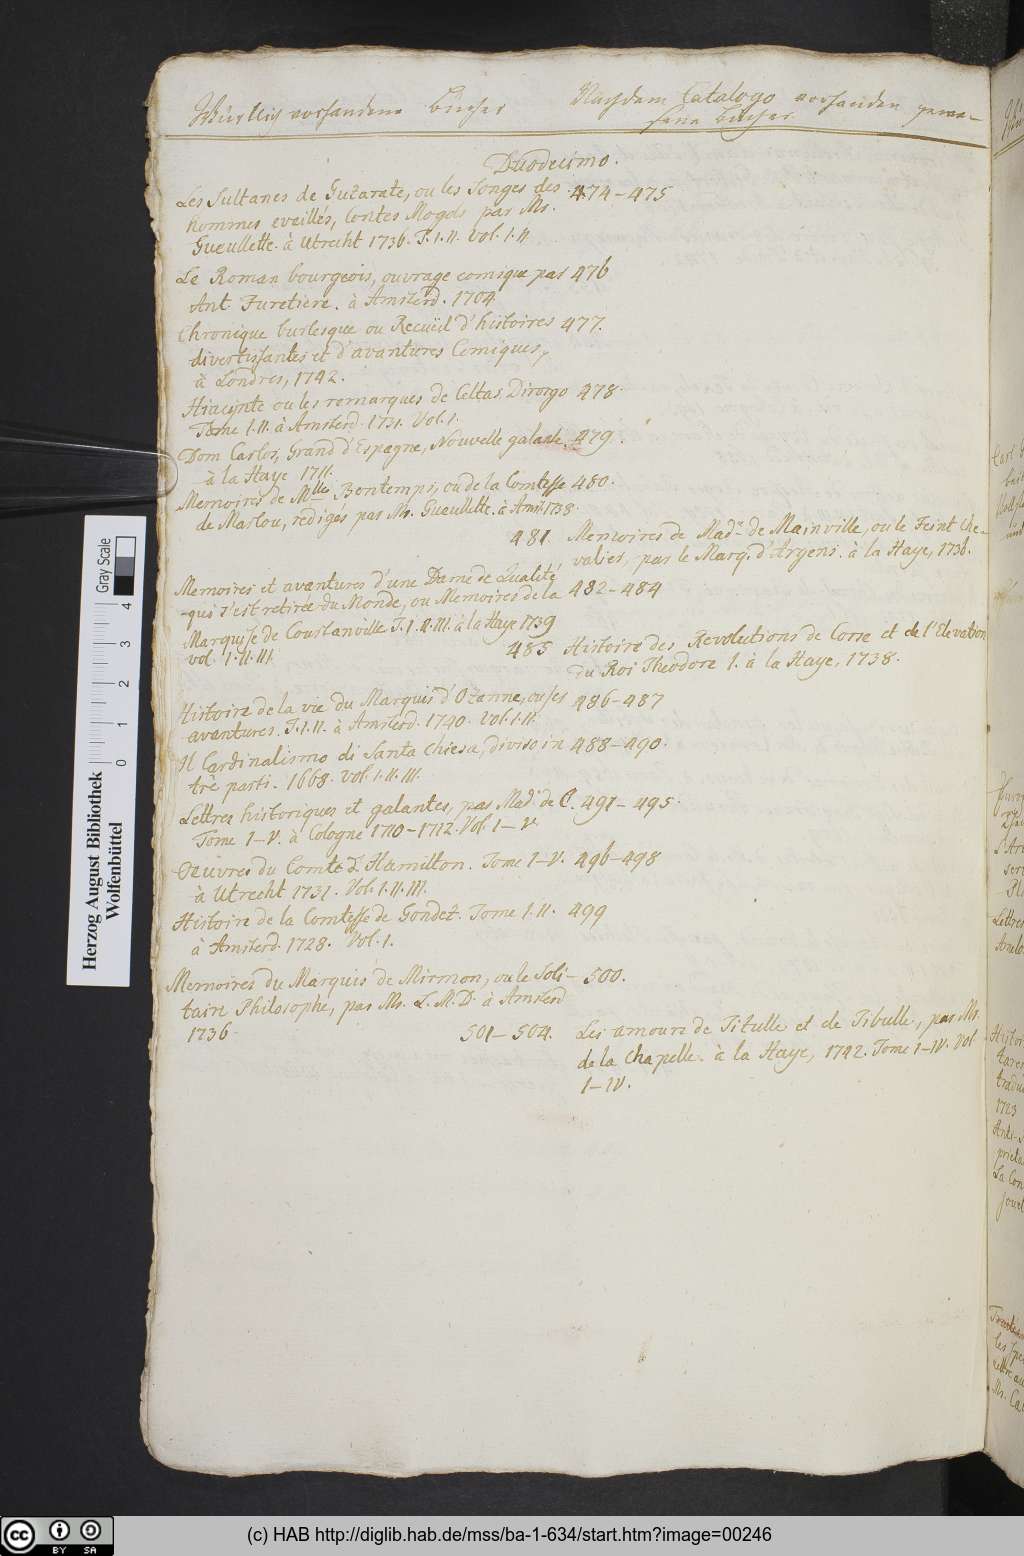 Würklich vorhandene Bücher
Nach dem Catalogo vorhanden gewe-
sene Bücher
Duodecimo.
Les Sultanes de Guzarate, ou les Songes des 474-475
hommes eveillés, Contes Mogols par Mr.
Gueullette. à Utrecht 1736. T. I. II. vol. I. II
Le Roman bourgeois, ouvrage comique par 476
Ant. Furetiere. à Amsterd. 1704
Chronique burlesque ou Recüeil d'histoires 477.
divertissantes et d'avantures Comiques,
à Londres, 1742.
Hiacynte ou les remarques de Celtas Dirorgo 478.
Tome I. II. à Amsterd. 1731. Vol. 1.
Dom Carlos, Grand d'Espagne, Nouvelle galante. 479.
à la Haye 1711.
Memoires de Mlle Bontemps, ou de la Comtesse 480.
de Marlou, redigés par Mr. Gueullette. à Amst. 1738.
481. Memoires de Made de Mainville, ou le Feint Che-
valier, par le Marq. d'Argens. à la Haye, 1736.
Memoires et avantures d'une Dame de Qualité
qui s'est retirée du Monde, ou Memoires de la 482-484
Marquise de Courtanville T. I. II. III. à la Haye 1739
vol. I. II. III.
485 Histoire des Revolutions de Corse et de l'Elevation
du Roi Theodore I. à la Haye, 1738.
Histoire de la vie du Marquis d'Ozanne, ou ses 486-487
avantures. T. I. II. à Amsterd. 1740. Vol. I. II.
Il Cardinalismo di Santa Chiesa, diviso in 488-490.
trè parti. 1668. vol. I. II. III.
Lettres historiques et galantes, par Mad. de C. 491-495.
Tome I-V. à Cologne 1710-1712. Vol. I-V
Oeuvres du Comte d'Hamilton. Tome I-V. 496-498
à Utrecht 1731. Vol. I. II. III.
Histoire de la Comtesse de Gondez. Tome I. II. 499
à Amsterd. 1728. Vol. 1.
Memoires du Marquis de Mirmon, ou le Soli- 500.
taire Philosophe, par Mr. L. M. D. à Amsterd
1736
501-504. Les amours de Titulle et de Tibulle, par Mr.
de la Chapelle. à la Haye, 1742. Tome I-IV. Vol
I-IV.
Herzog August Bibliothek
Wolfenbüttel
Gray Scale
0 1 2 3 4
cc BY SA
(c) HAB http://diglib.hab.de/mss/ba-1-634/start.htm?image=00246